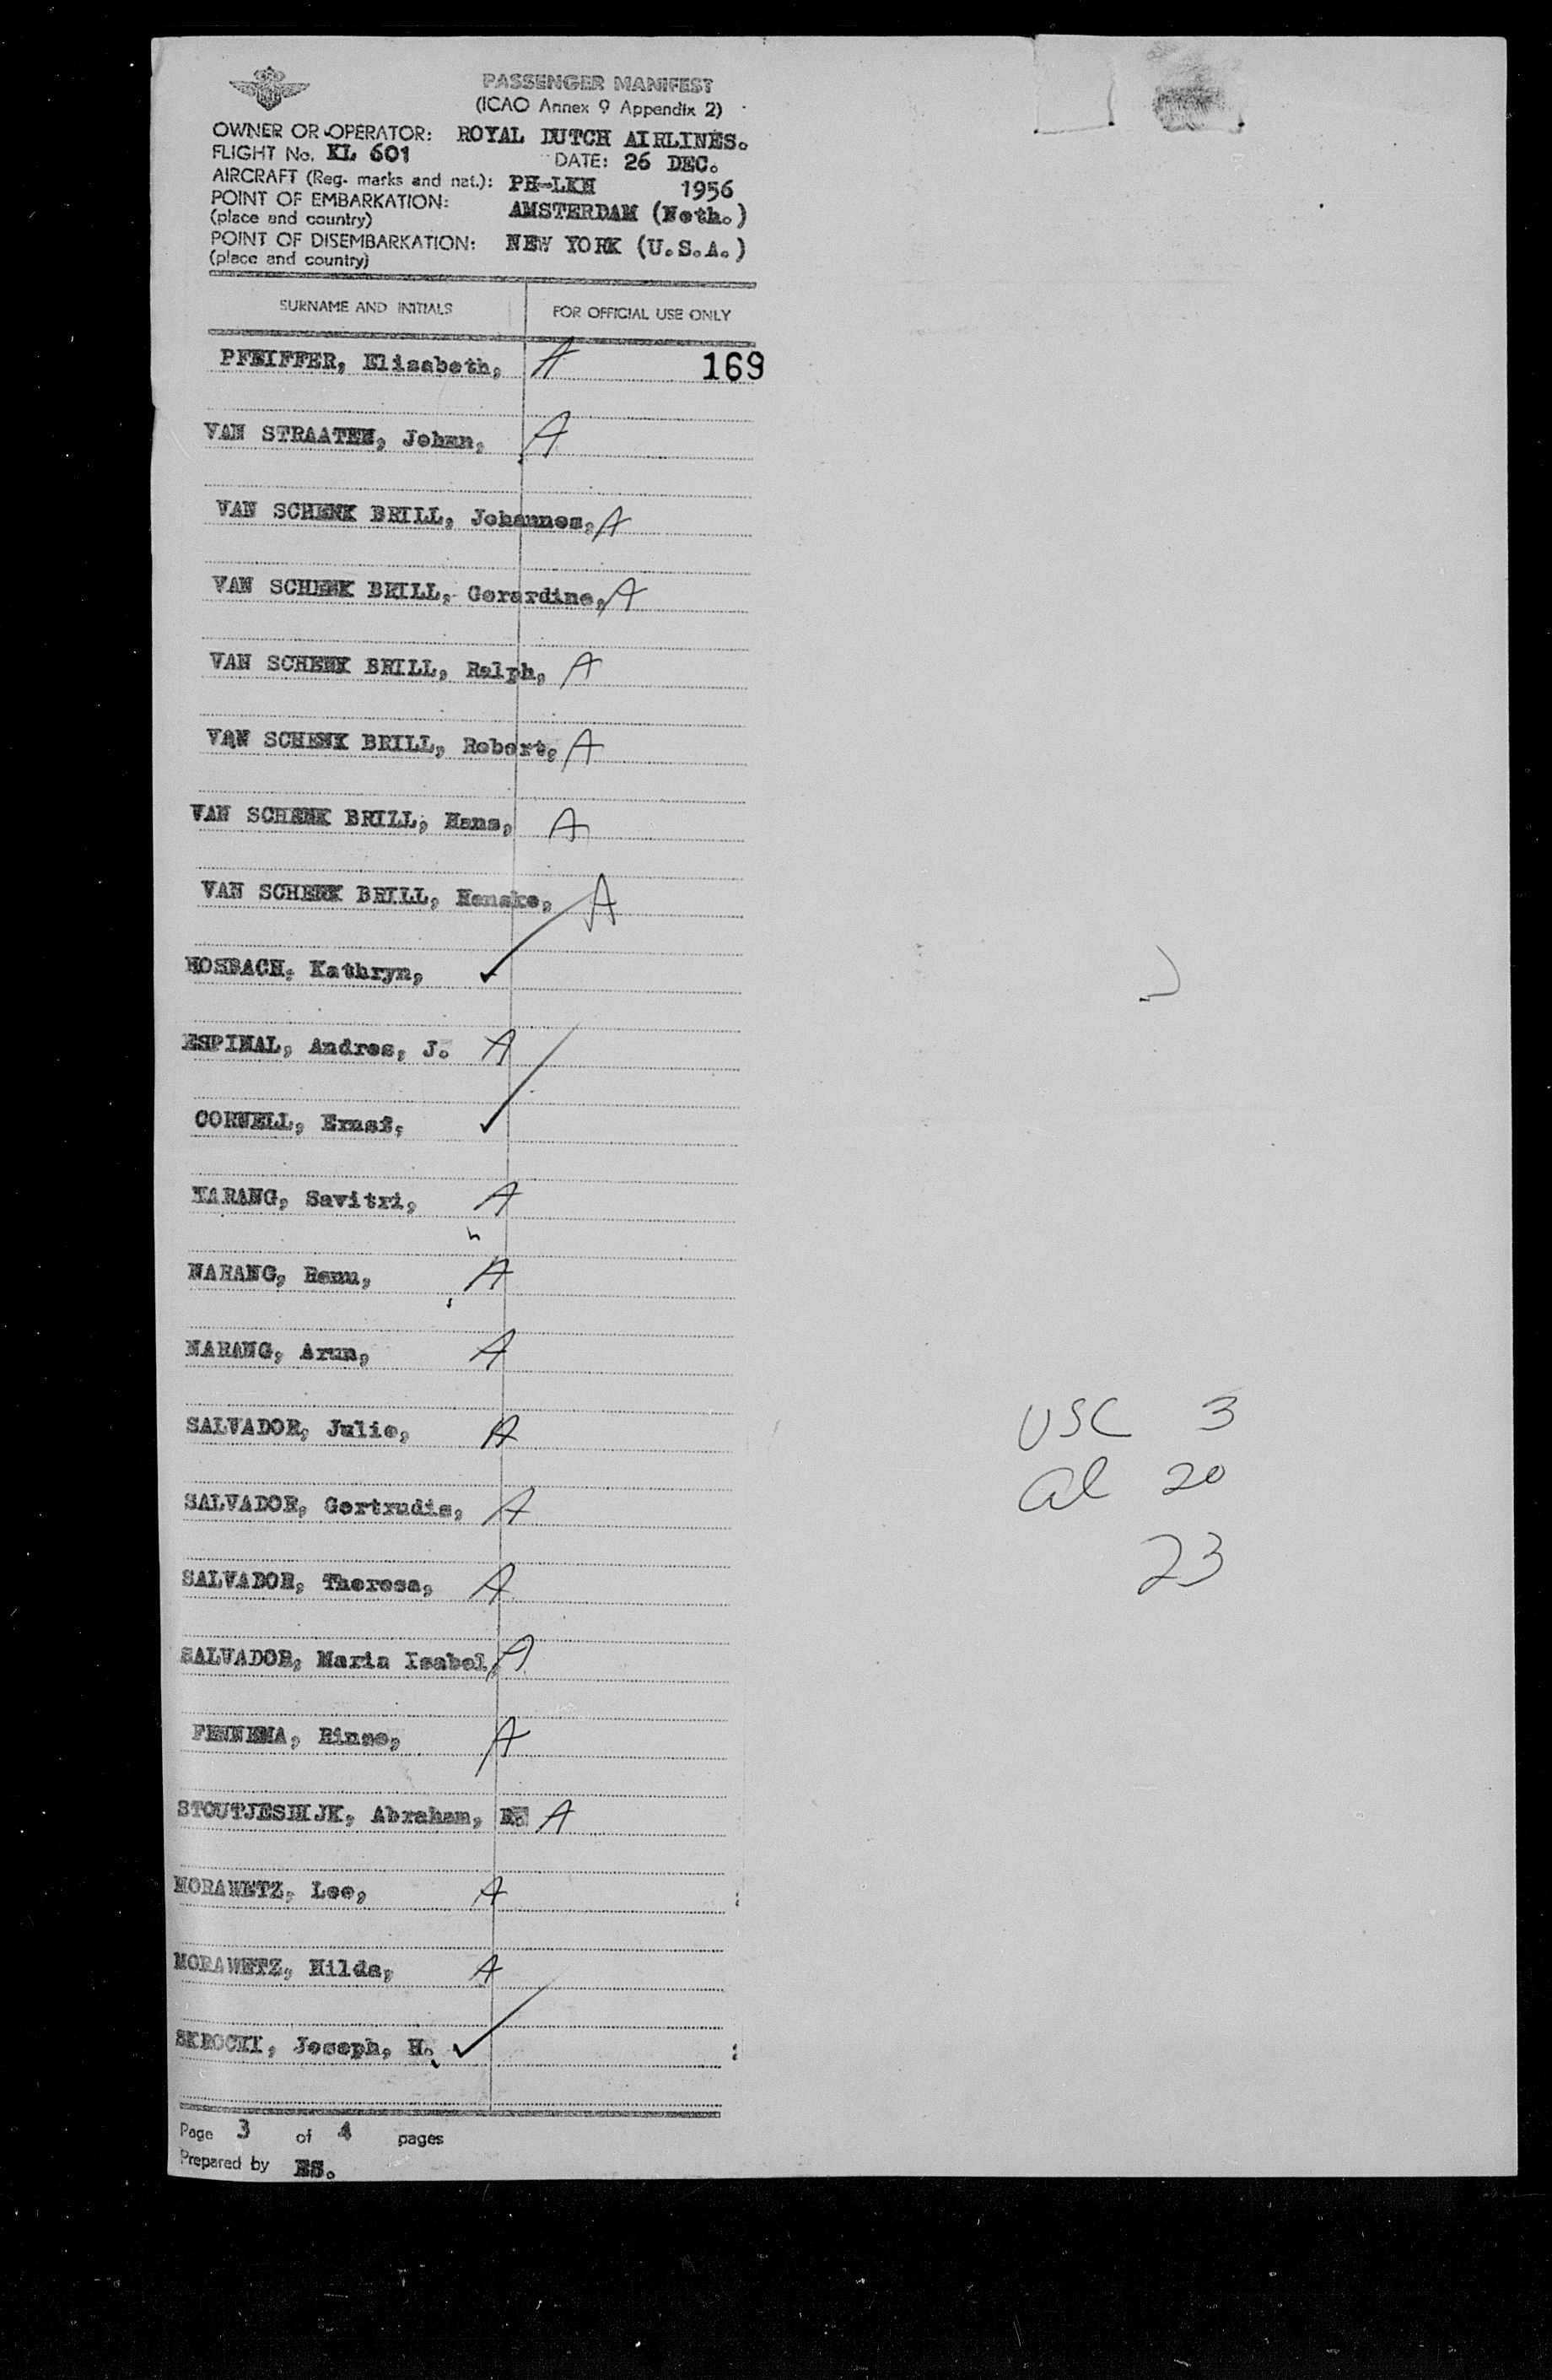 PASSENGER MANIFEST
(ICAO Annex 9 Appendix 2)
OWNER OR OPERATOR: ROYAL DUTCH AIRLINES.
FLIGHT No. KL 601 DATE: 26 DEC.
AIRCRAFT (Reg. marks and nat.): PH-LKH 1956
POINT OF EMBARKATION: AMSTERDAM (Neth.)
(place and country)
POINT OF DISEMBARKATION: NEW YORK (U.S.A.)
(place and country)
SURNAME AND INITIALS FOR OFFICIAL USE ONLY
PFEIFFER, Elisabeth, A 169
VAN STRAATEN, Johan, A
VAN SCHENK BRILL, Johannes, A
VAN SCHENK BRILL, Gerardine, A
VAN SCHENK BRILL, Ralph, A
VAN SCHENK BRILL, Robert, A
VAN SCHENK BRILL, Hans, A
VAN SCHENK BRILL, Henske, A
MOSBACH, Kathryn, ✓
ESPINAL, Andres, J. A
CORNELL, Ernst, ✓
NARANG, Savitri, A
NARANG, Renu, A
NARANG, Arun, A
SALVADOR, Julie, A
USC 3
SALVADOR, Gertrudis, A
al 20
SALVADOR, Theresa, A
23
SALVADOR, Maria Isabel, A
FENNEMA, Rinse, A
STOUTJESDIJK, Abraham, A
MORAWETZ, Leo, A
MORAWETZ, Hilda, A
SKROCKI, Joseph, H. ✓
Page 3 of 4 pages
Prepared by ES.